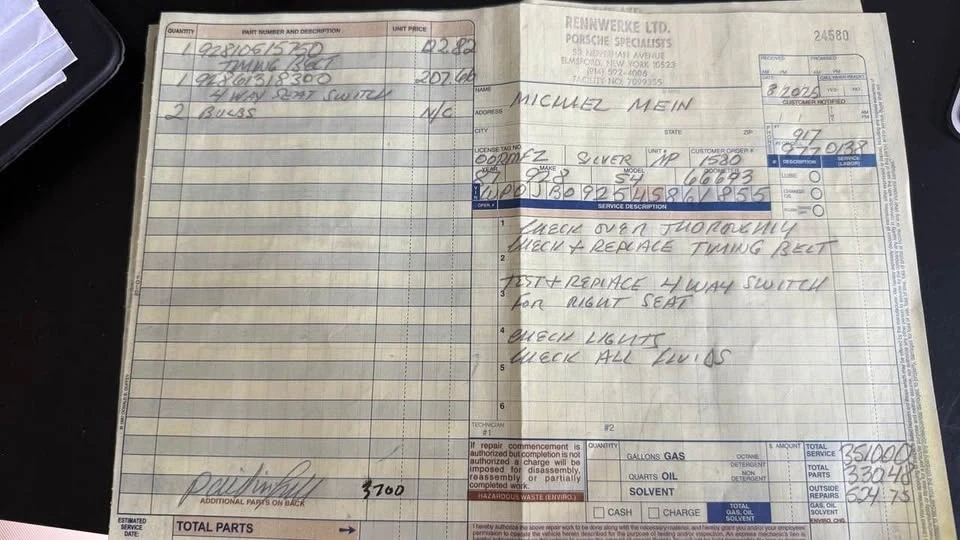 QUANTITY PART NUMBER AND DESCRIPTION UNIT PRICE
1 92810515750
TIMING BELT
1 92861318300 207.66
4 WAY SEAT SWITCH
2 BULBS N/C
RENNWERKE LTD.
PORSCHE SPECIALISTS
ELMSFORD, NEW YORK 10523
(914) 592-4006
FACILITY NO. 7099355
24580
RECEIVED PROMISED
AM PM AM PM
DATE CALL WHEN READY
YES NO
CUSTOMER NOTIFIED
NAME MICHAEL MEIN
ADDRESS
CITY STATE ZIP
917
LICENSE TAG NO. UNIT # CUSTOMER ORDER #
SILVER 1580
YEAR MAKE MODEL ODOMETER
928 S4 66693
# DESCRIPTION SERVICE (LABOR)
LUBE
CHANGE OIL
OPER. # SERVICE DESCRIPTION
1 CHECK OVER THOROUGHLY
CHECK + REPLACE TIMING BELT
2
TEST + REPLACE 4 WAY SWITCH
3
FOR RIGHT SEAT
4 CHECK LIGHTS
CHECK ALL FLUIDS
5
6
TECHNICIAN
#1 #2
If repair commencement is
authorized but completion is not
authorized a charge will be
imposed for disassembly,
reassembly or partially
completed work.
HAZARDOUS WASTE (ENVIRO.)
QUANTITY $ AMOUNT
GALLONS GAS OCTANE
DETERGENT
QUARTS OIL NON DETERGENT
SOLVENT
CASH CHARGE TOTAL GAS, OIL SOLVENT
TOTAL SERVICE
TOTAL PARTS 330.48
OUTSIDE REPAIRS 524.75
GAS, OIL SOLVENT
ENVIRO. CHG.
3700
ADDITIONAL PARTS ON BACK
ESTIMATED SERVICE DATE:
TOTAL PARTS
I hereby authorize the above repair work to be done along with the necessary material, and hereby grant you and/or your employees
permission to operate the vehicle herein described for the purpose of testing and/or inspection. An express mechanic's lien is